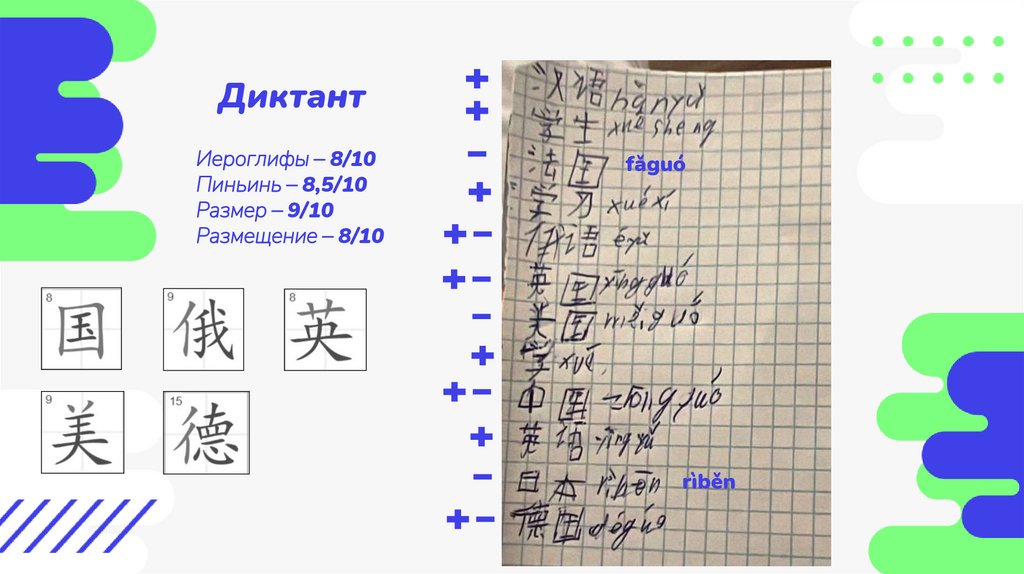 Диктант
Иероглифы – 8/10
Пиньинь – 8,5/10
Размер – 9/10
Размещение – 8/10
8 国
9 俄
8 英
9 美
15 德
+ 汉语 hànyǔ
+ 学生 xuésheng
– 法国 fǎguó
+ 学习 xuéxí
+– 俄语 éyǔ
+– 英国 yīngguó
– 美国 měiguó
+ 学 xué
+– 中国 zhōngguó
+ 英语 yīngyǔ
– 日本 rìbēn rìběn
+– 德国 déguó